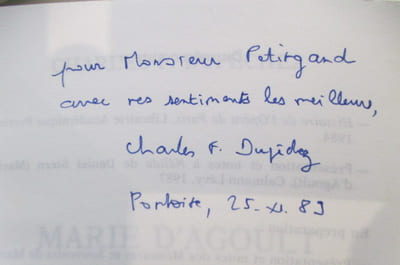 pour Monsieur Petitgand
avec mes sentiments les meilleurs,
— Histoire de l'Opéra de Paris, Librairie Académique
1984.
Charles F. Dupêchez
— Présentation et notes à Nélida de Daniel Stern
d'Agoult), Calmann-Lévy, 1987
Pontoise, 25-XI. 89
En préparation
MARIE D'AGOULT